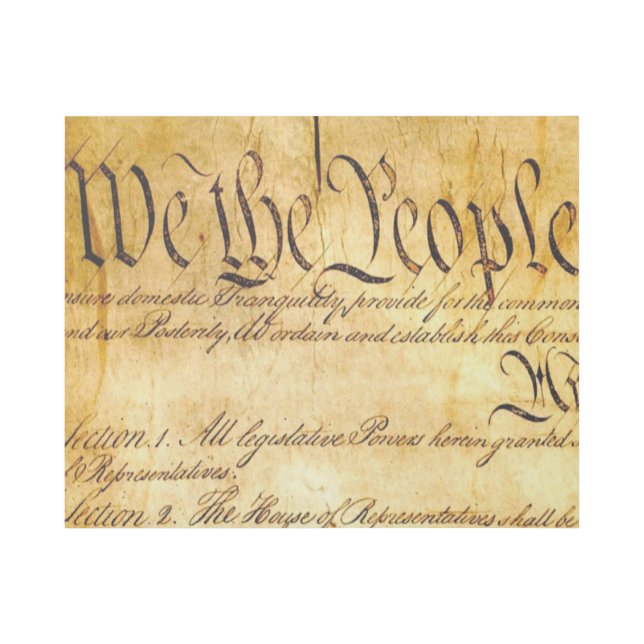 We the People
nsure domestic Tranquility, provide for the common
nd our Posterity, do ordain and establish this Cons
Section. 1. All legislative Powers herein granted s
Representatives.
Section. 2. The House of Representatives shall be